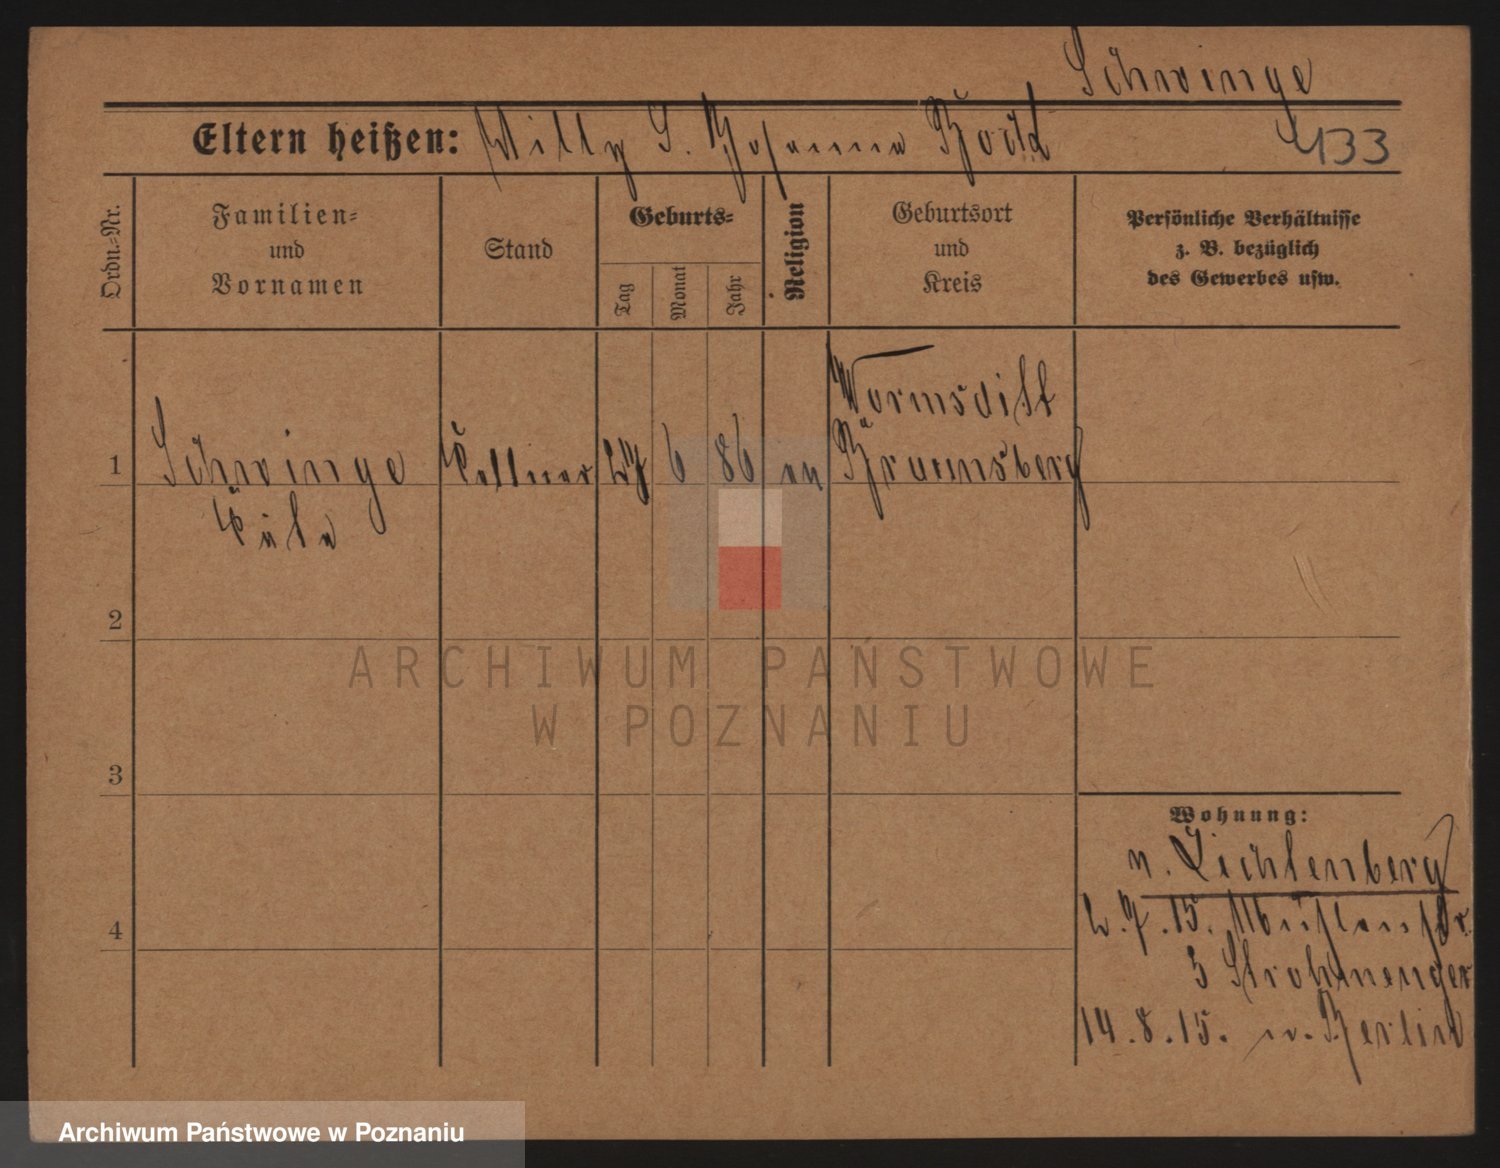 Schwinge
Eltern heißen: Willy S. Bordt
433
Ordn.-Nr.
Familien-
und
Vornamen
Stand
Geburts-
Tag
Monat
Jahr
Religion
Geburtsort
und
Kreis
Persönliche Verhältnisse
z. B. bezüglich
des Gewerbes usw.
Wormditt
1 Schwinge Kellner 27 6 86 ev Braunsberg
2
3
4
Wohnung:
n. Lichtenberg
2.7.15. Mühlenstr.
5 Strohmenger
14.8.15. n. Berlin
ARCHIWUM PAŃSTWOWE
W POZNANIU
Archiwum Państwowe w Poznaniu